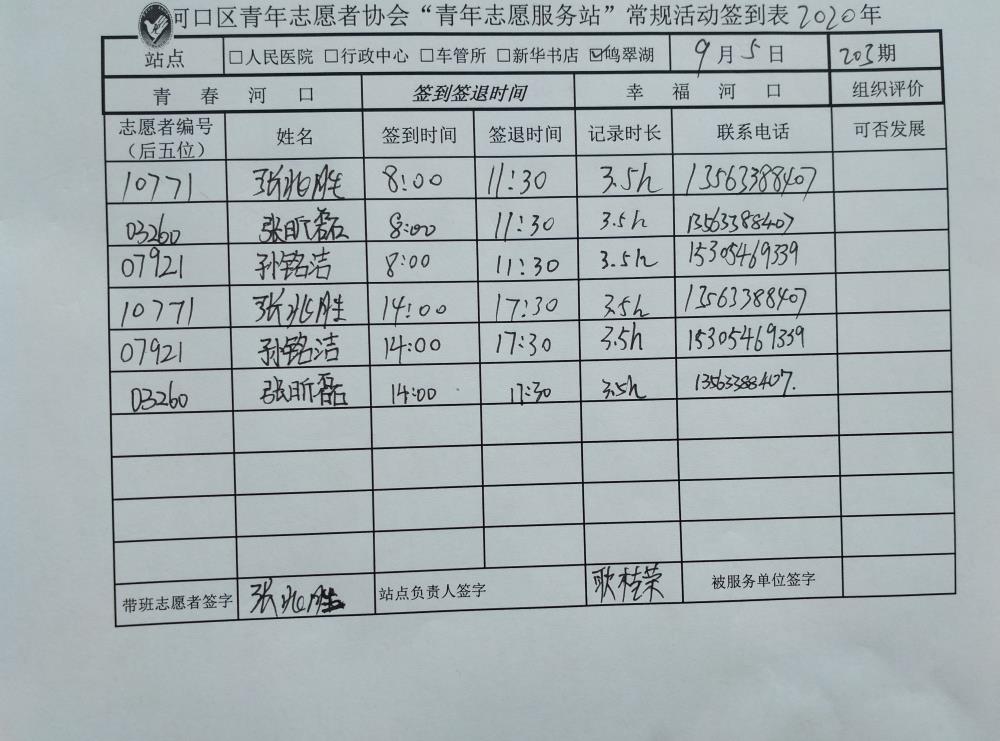 河口区青年志愿者协会“青年志愿服务站”常规活动签到表2020年
站点 □人民医院 □行政中心 □车管所 □新华书店 ☑鸣翠湖 9月5日 203期
青春河口 签到签退时间 幸福河口 组织评价
志愿者编号（后五位） 姓名 签到时间 签退时间 记录时长 联系电话 可否发展
10771 张兆胜 8:00 11:30 3.5h 13563388407
03260 张昕磊 8:00 11:30 3.5h 13563388407
07921 孙铭洁 8:00 11:30 3.5h 15305469339
10771 张兆胜 14:00 17:30 3.5h 13563388407
07921 孙铭洁 14:00 17:30 3.5h 15305469339
03260 张昕磊 14:00 17:30 3.5h 13563388407.
带班志愿者签字 张兆胜 站点负责人签字 耿桂荣 被服务单位签字